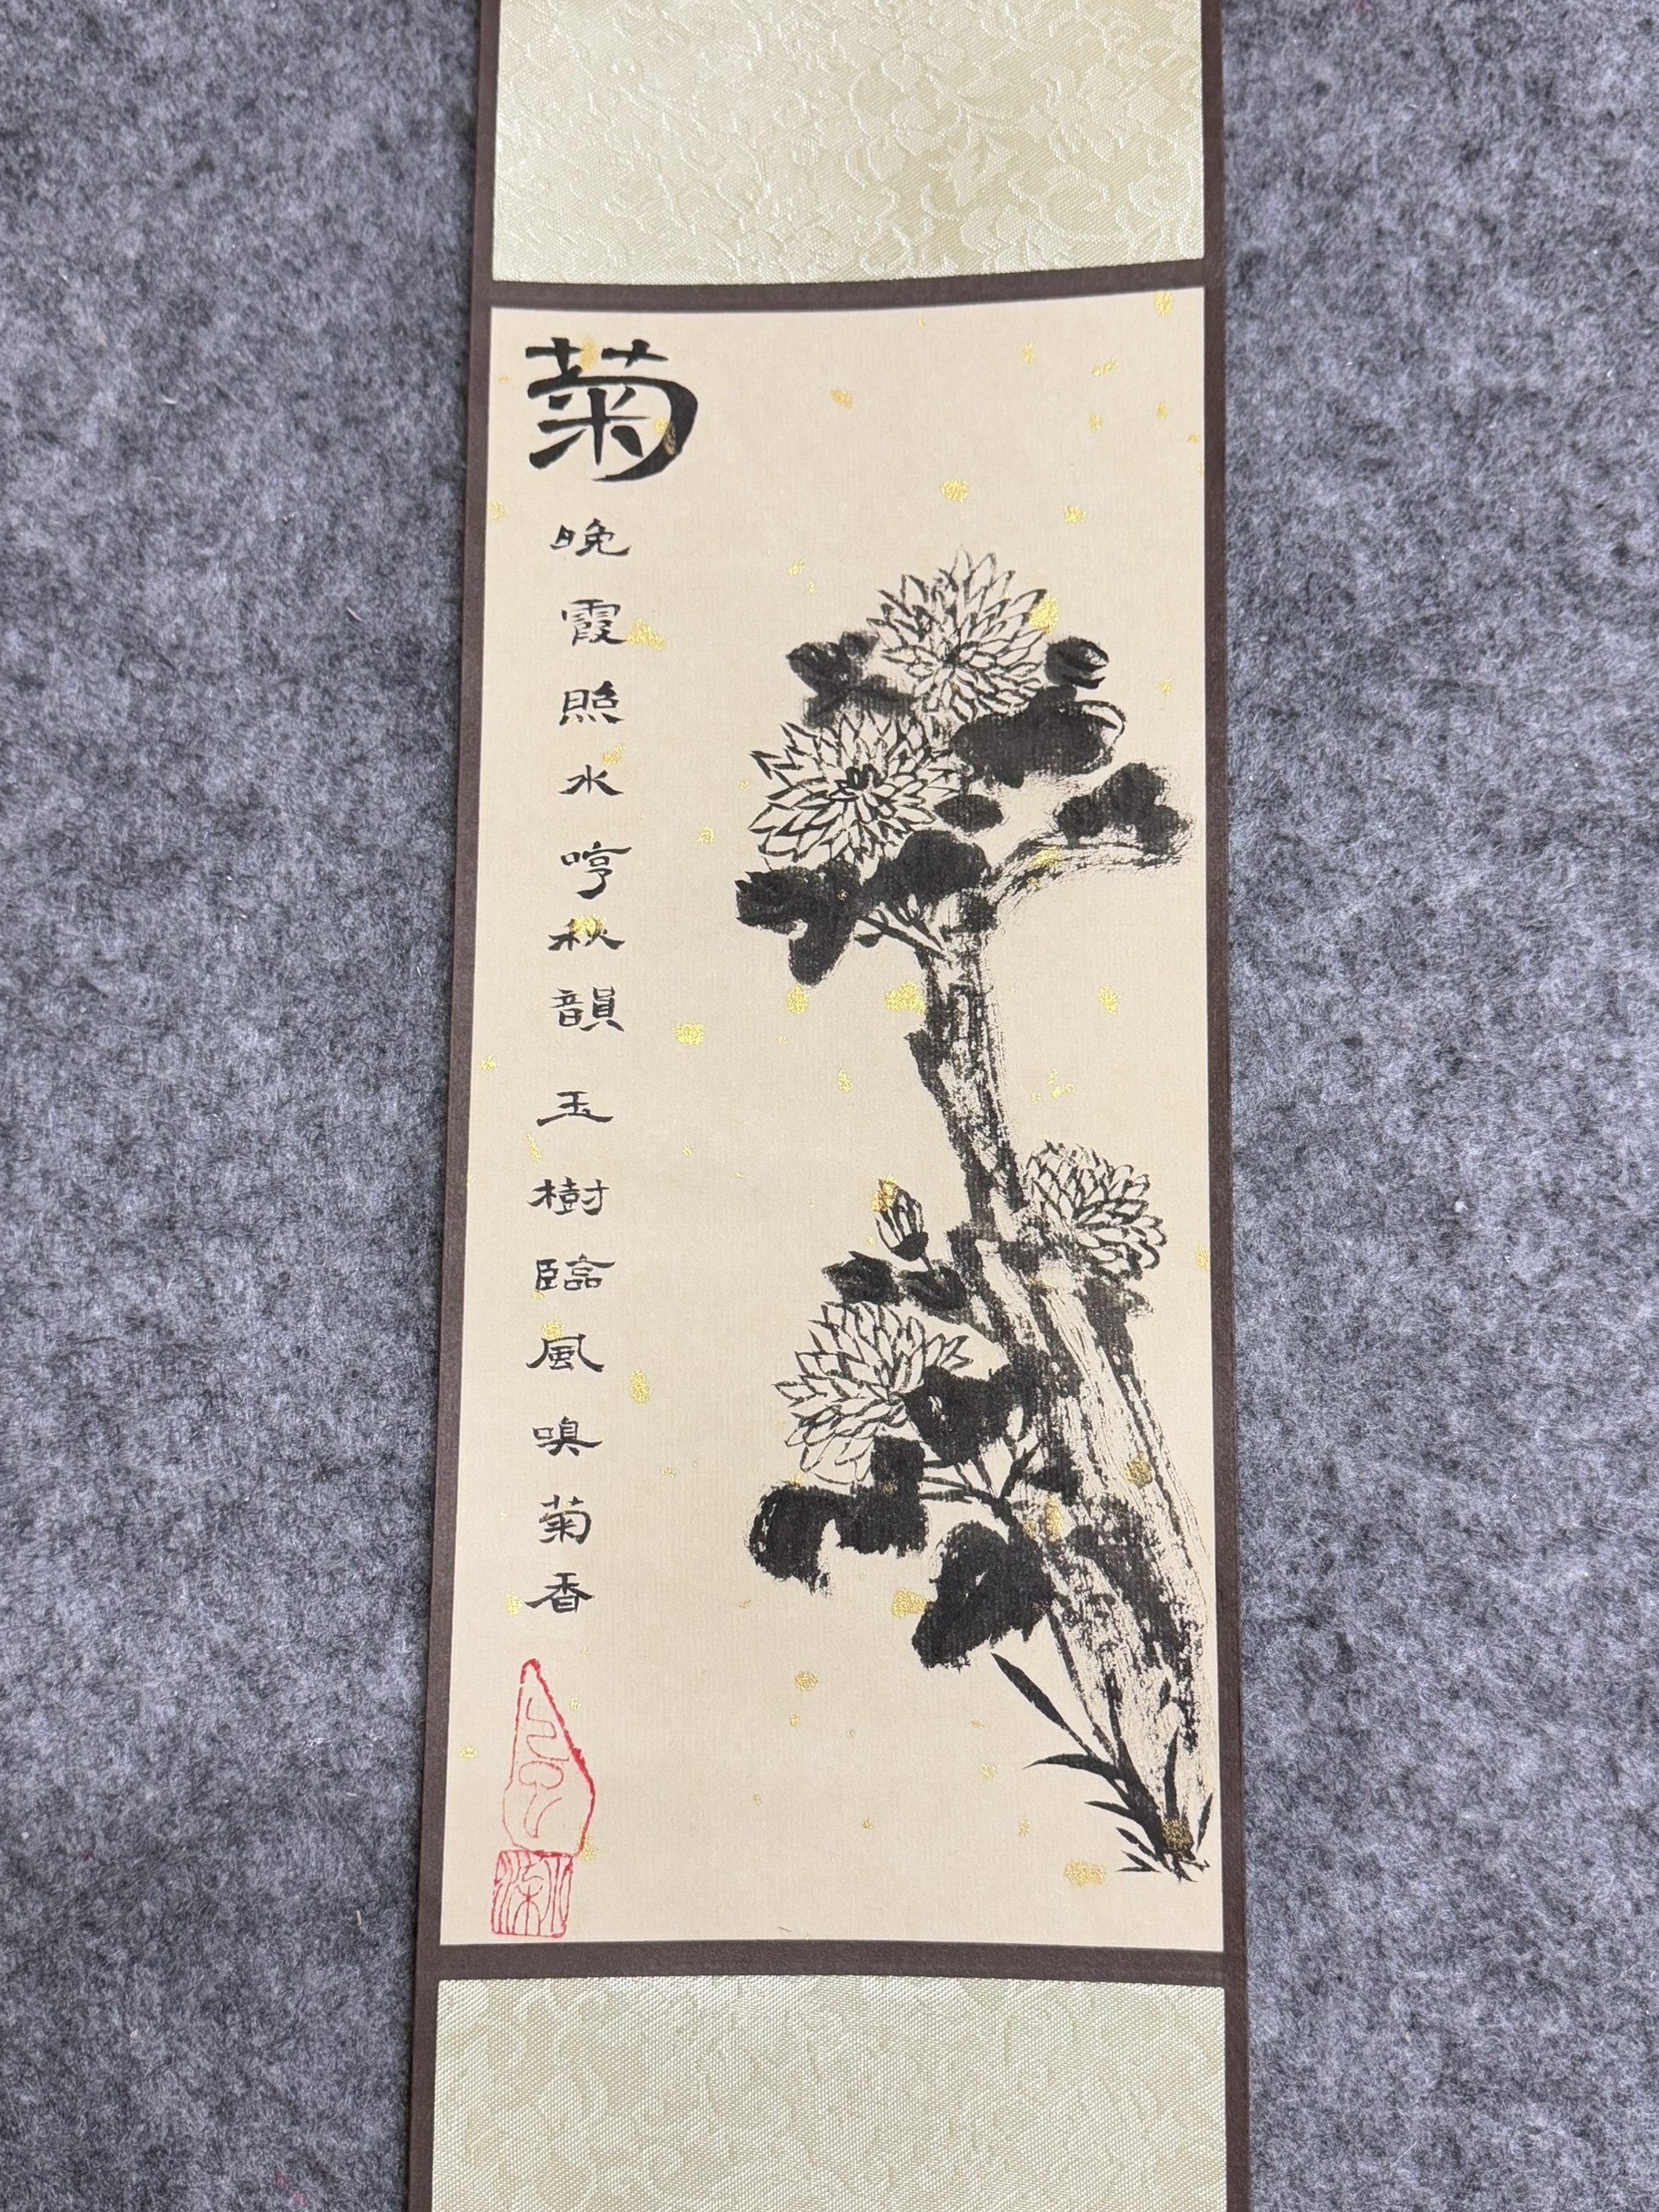 菊
晚霞照水哼秋韻
玉樹臨風嗅菊香